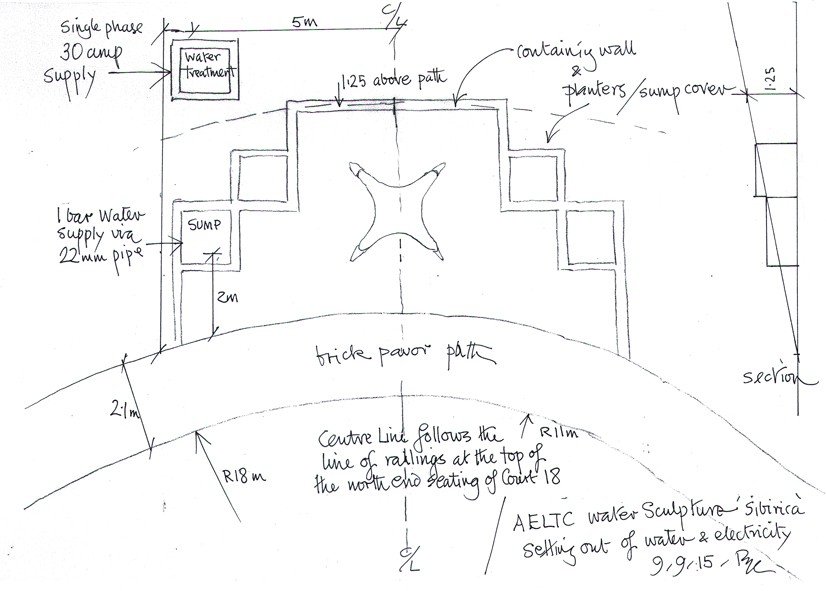 Single phase
30 amp
Supply
5m
C/L
Water
treatment
1·25 above path
containing wall
&
planters/sump cover
1·25
1 bar Water
Supply via
22mm pipe
SUMP
2m
brick pavor path
section
2·1m
R18m
R11m
Centre Line follows the
line of railings at the top of
the north end seating of Court 18
C/L
AELTC water Sculpture 'Sibirica'
Setting out of water & electricity
9,9,15,